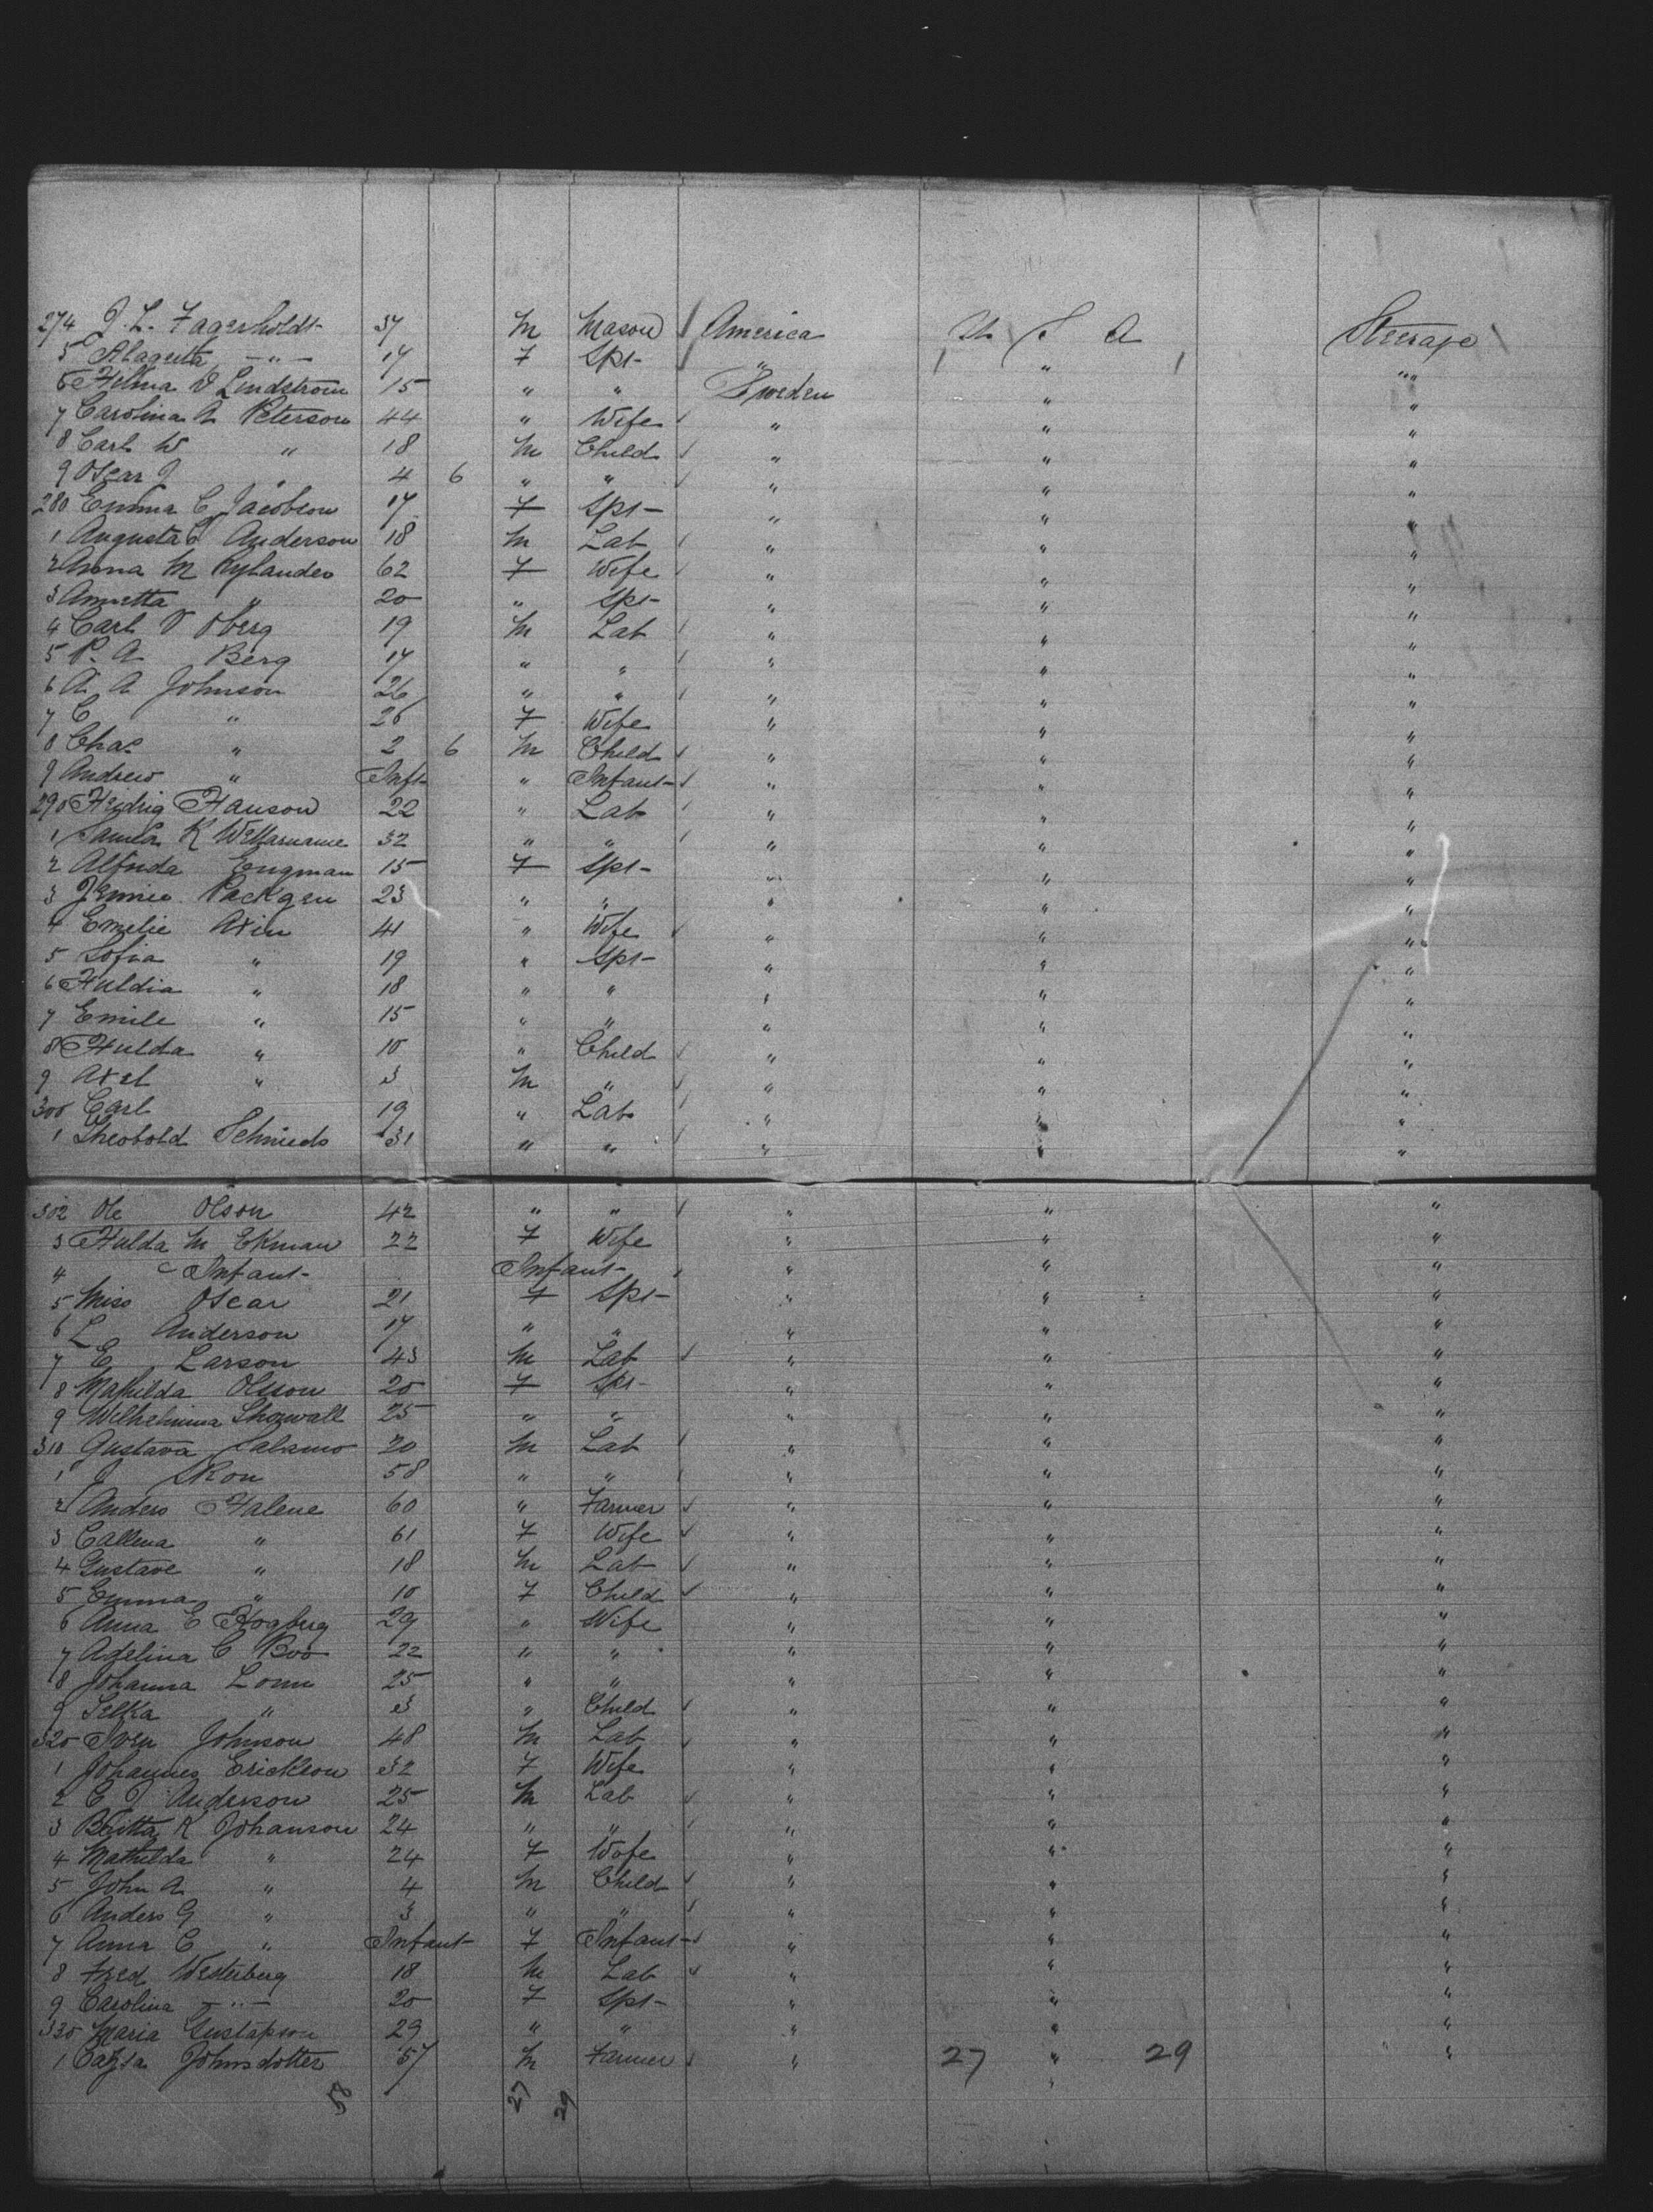 274 J. L. Fagerholdt 37 M Mason America U S A Steerage
5 Alagretta -"- 17 F Spr- " " "
6 Hilma V Lindstrom 15 " " Sweden " "
7 Carolina A Peterson 44 " Wife " " "
8 Carl W " 18 M Child " " "
9 Oscar J " 4 6 " " " " "
280 Emma C Jacobson 17 F Spr- " " "
1 Augusta C Anderson 18 M Lab " " "
2 Anna M Rylander 62 F Wife " " "
3 Annetta " 20 " Spr- " " "
4 Carl V Oberg 19 M Lab " " "
5 P. A Berg 17 " " " " "
6 A. A Johnson 26 " " " " "
7 C " 26 F Wife " " "
8 Chas " 2 6 M Child " " "
9 Andrew " Inft " Infant " " "
290 Heidrig Hanson 22 " Lab " " "
1 K 32 " " " " "
2 Alfrida Engman 15 F Spr- " " "
3 Jennie Packgren 23 " " " " "
4 Emelie Axin 41 " Wife " " "
5 Sofia " 19 " Spr- " " "
6 Huldia " 18 " " " " "
7 Emile " 15 " " " " "
8 Hulda " 10 " Child " " "
9 Axel " 3 M " " " "
300 Carl 19 " Lab " " "
1 Theobold Schmieds 31 " " " " "
302 Ole Olson 42 " " " " "
3 Hulda M Ekman 22 F Wife " " "
4 " Infant Infant " " "
5 Miss Oscar 21 F Spr- " " "
6 L Anderson 17 " " " " "
7 E Larson 43 M Lab " " "
8 Mathilda Olsson 20 F Spr- " " "
9 Wilhelmina Showall 25 " " " " "
310 Gustava Salamo 20 M Lab " " "
1 J Skon 58 " " " " "
2 Anders Halene 60 " Farmer " " "
3 Callena " 61 F Wife " " "
4 Gustave " 18 M Lab " " "
5 Emma " 10 F Child " " "
6 Anna C Hogberg 29 " Wife " " "
7 Adelina C Boo 22 " " " " "
8 Johanna Lonn 25 " " " " "
9 Selka " 3 " Child " " "
320 Sven Johnson 48 M Lab " " "
1 Johannes Erickson 32 F Wife " " "
2 C J Anderson 25 M Lab " " "
3 Britta K Johanson 24 " " " " "
4 Mathilda " 24 F Wife " " "
5 John A " 4 M Child " " "
6 Anders G " 3 " " " " "
7 Anna C " Infant F Infant " " "
8 Fred Westerberg 18 M Lab " " "
9 Carolina -"- 20 F Spr- " " "
330 Maria Gustafson 29 " " " " "
1 Cajsa Johnsdotter 57 M Farmer " 27 " 29 "
58 27 29